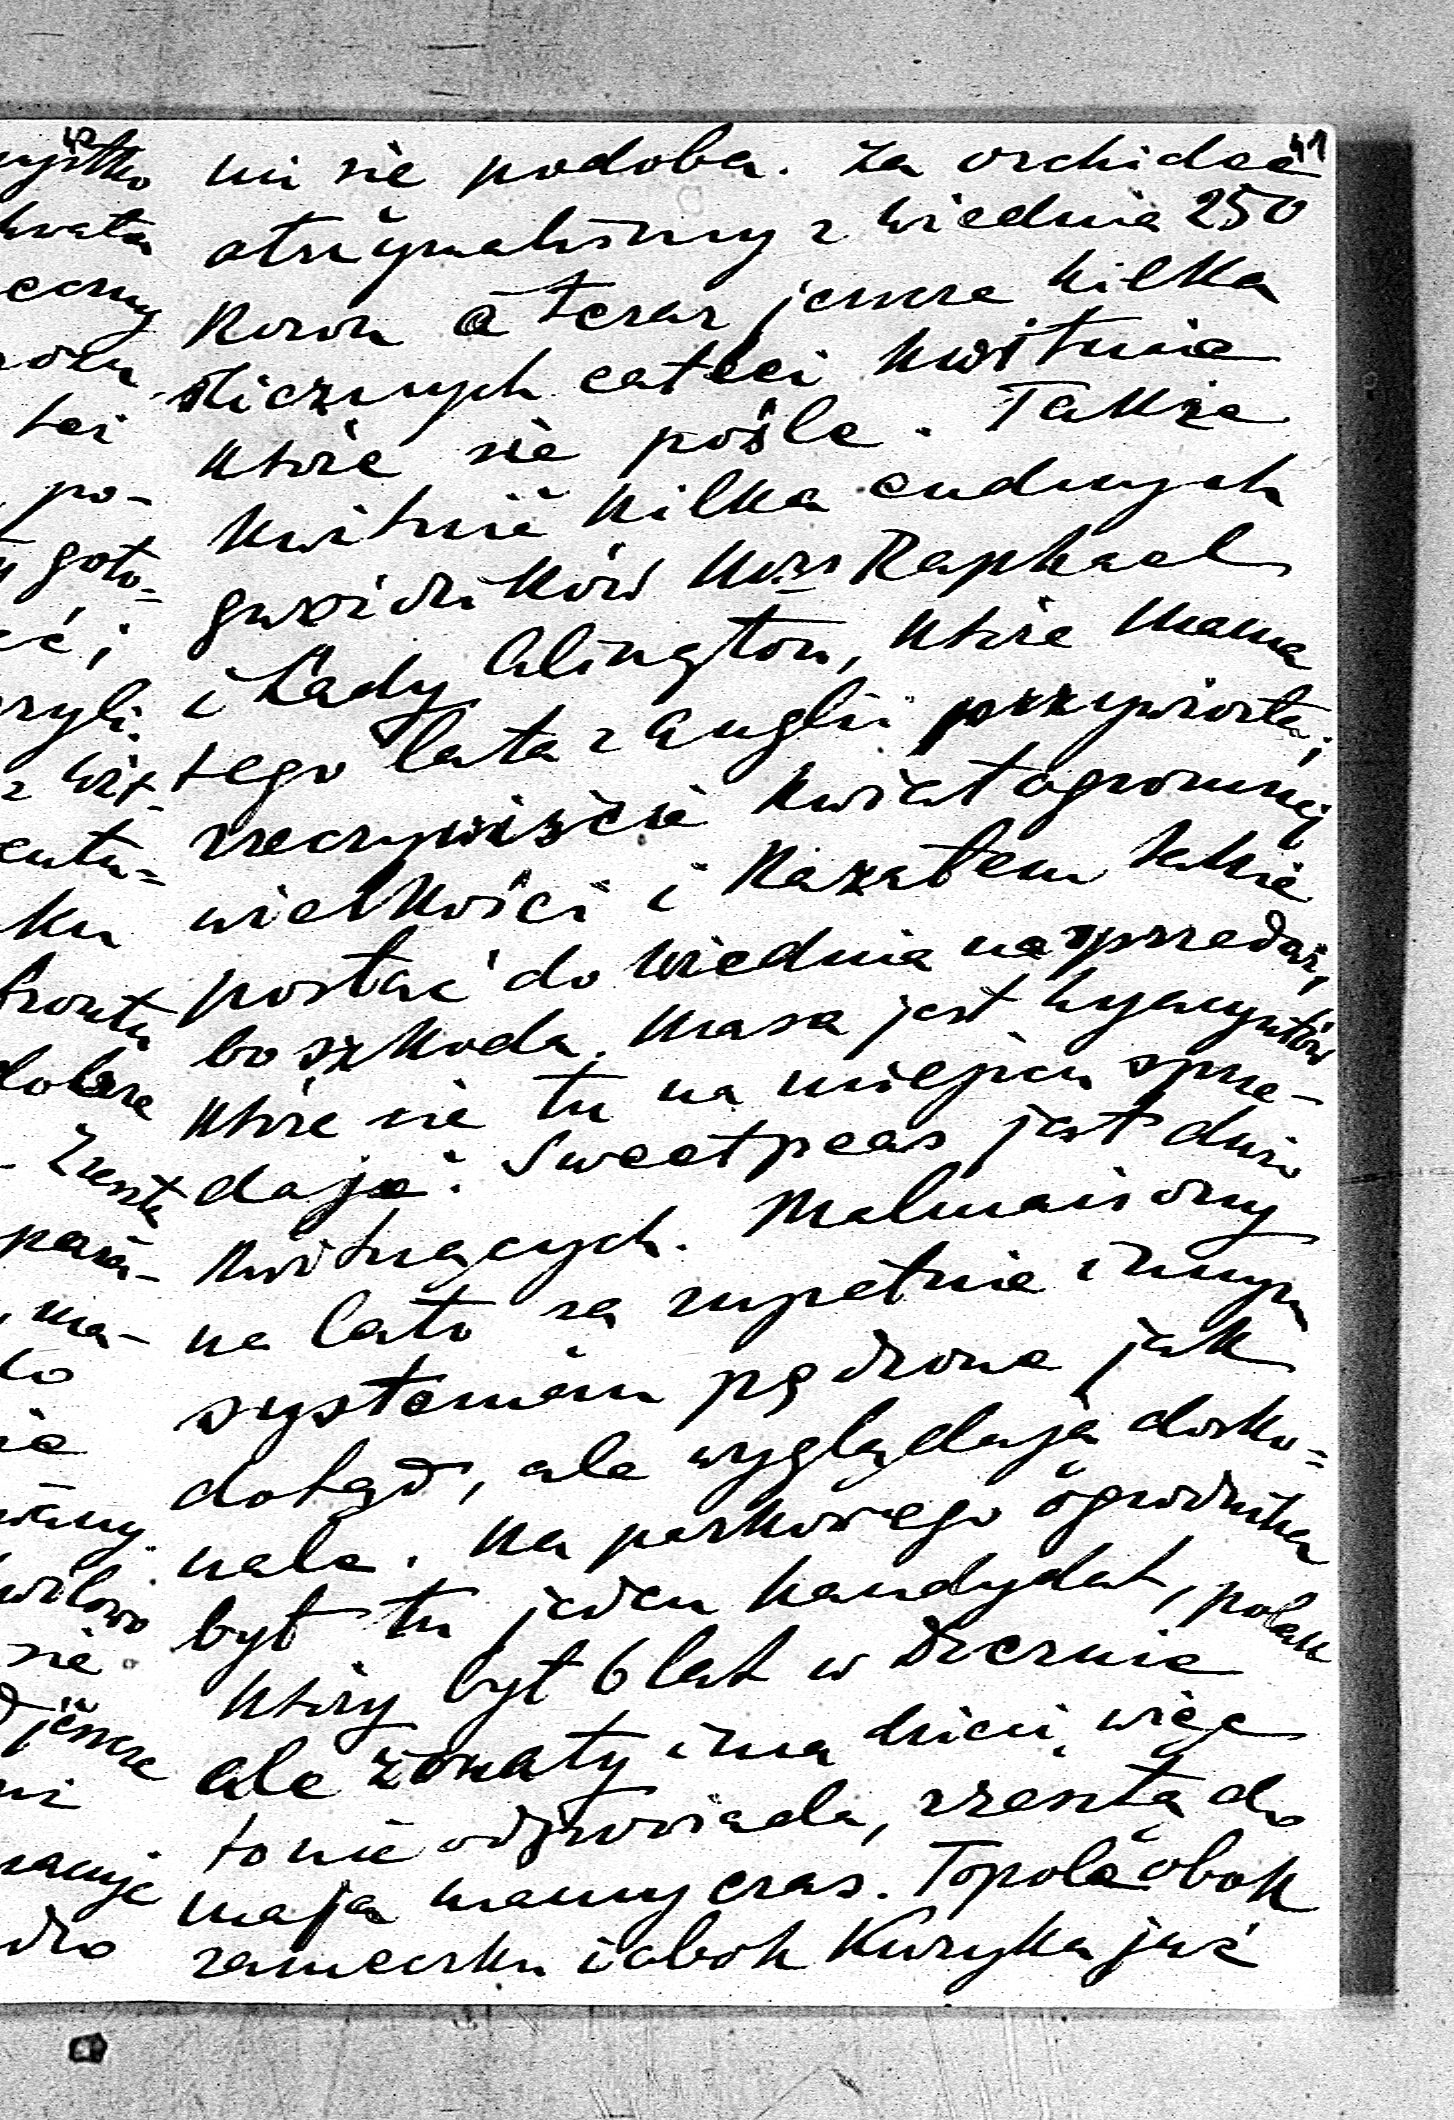 41
mi się podoba. Za orchidee
otrzymaliśmy z Wiednia 250
Koron a teraz jeszcze kilka
ślicznych catlei kwitnie
które się pośle. Także
kwitnie kilka cudnych
gwoździków Mrs Raphael
i Lady Alington, które Mama
tego lata z Anglii przywiozła;
rzeczywiście kwiat ogromnej
wielkości i kazałem takie
posłać do Wiednia na sprzedaż,
bo szkoda. Masa jest hyacyntów
które się tu na miejscu sprze-
daje. Sweetpeas jest dużo
kwitnących. Malmaisony
na lato są zupełnie innym
systemem pędzone jak
dotąd, ale wyglądają dosko=
nale. Na parkowego ogrodnika
był tu jeden kandydat, polak
który był 6 lat w
ale żonaty i ma dzieci, więc
to nie odpowiada, zresztą do
maja mamy czas. Topole obok
zameczku i obok Kuryka już
wszystko
po-
goto=
ku
frontu
dobrze
Zresztą
ma-
się
jeszcze